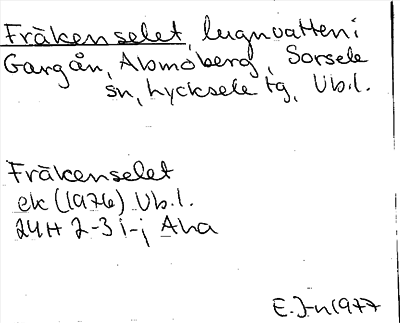 Fräkenselet, lugnvatten i
Gargån, Abmoberg, Sorsele
sn, Lycksele tg, Vb.l.
Fräkenselet
ek (1976) Vb.l.
24H 2-3 i-j Aha
E.J-n 1977